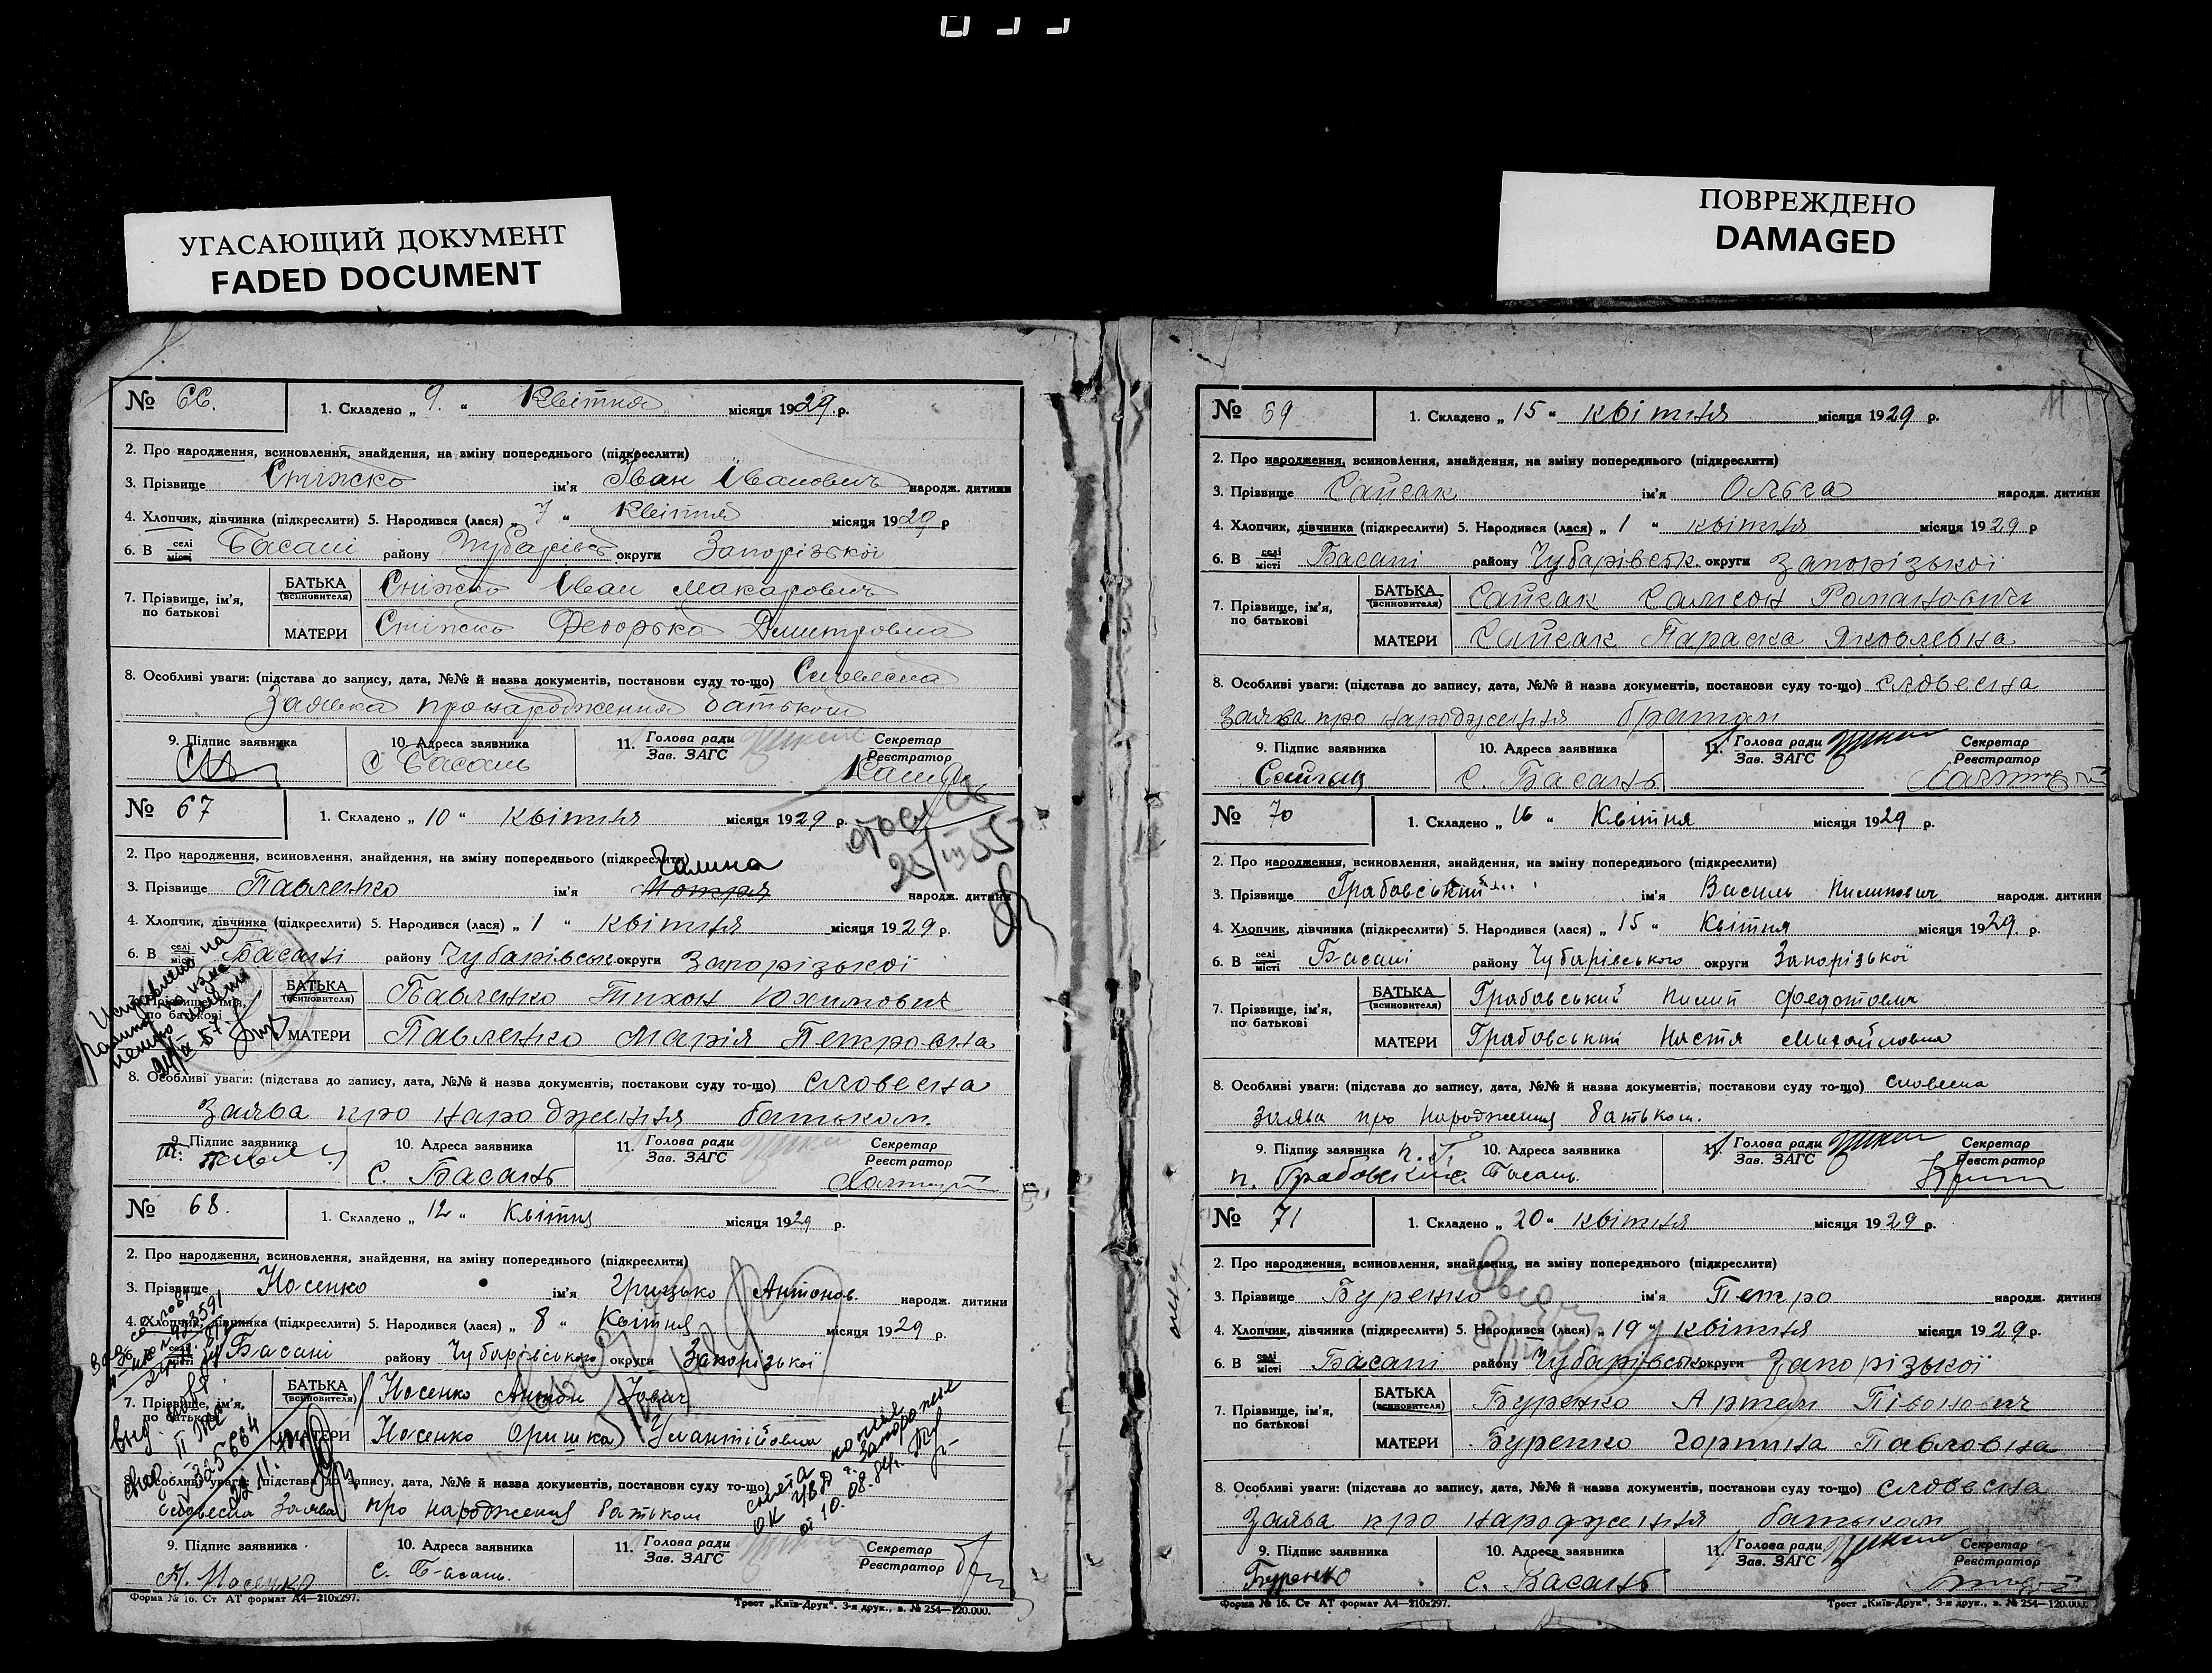 УГАСАЮЩИЙ ДОКУМЕНТ
FADED DOCUMENT
ПОВРЕЖДЕНО
DAMAGED
№ 66.
1. Складено „ 9. “ Квітня місяця 1929 р.
2. Про народження, всиновлення, знайдення, на зміну попереднього (підкреслити)
3. Прізвище Сніжко ім'я Іван Іванович народж. дитини
4. Хлопчик, дівчинка (підкреслити) 5. Народився (лася) „ 7 “ Квітня місяця 1929 р
6. В селі місті Басані району Чубарівськ округи Запорізької
7. Прізвище, ім'я, по батькові
БАТЬКА (всиновителя) Сніжко Іван Макарович
МАТЕРИ Сніжко Федорька Дмитровна
8. Особливі уваги: (підстава до запису, дата, №№ й назва документів, постанови суду то-що) Словесна
Заявка про народження батьком
9. Підпис заявника
10. Адреса заявника
11. Голова ради Зав. ЗАГС
Секретар Реєстратор
С Басань
№ 67
1. Складено „ 10 “ квітня місяця 1929 р.
25/III 55
2. Про народження, всиновлення, знайдення, на зміну попереднього (підкреслити)
Галина
3. Прізвище Павленко ім'я Мотря народж. дитини
4. Хлопчик, дівчинка (підкреслити) 5. Народився (лася) „ 1 “ квітня місяця 1929 р.
6. В селі місті Басані району Чубарівськ округи Запорізької
7. Прізвище, ім'я, по батькові
БАТЬКА (всиновителя) Павленко Тихон Юхимович
МАТЕРИ Павленко Марія Петровна
8. Особливі уваги: (підстава до запису, дата, №№ й назва документів, постанови суду то-що) словесна
заява про народження батьком.
9. Підпис заявника
10. Адреса заявника
11. Голова ради Зав. ЗАГС
Секретар Реєстратор
с. Басань
№ 68.
1. Складено „ 12 “ Квітня місяця 1929 р.
2. Про народження, всиновлення, знайдення, на зміну попереднього (підкреслити)
3. Прізвище Носенко ім'я Грицько Антонов. народж. дитини
4. Хлопчик, дівчинка (підкреслити) 5. Народився (лася) „ 8 “ Квітня місяця 1929 р.
6. В селі місті Басані району Чубарівського округи Запорізької
7. Прізвище, ім'я, по батькові
БАТЬКА (всиновителя) Носенко Антон
МАТЕРИ Носенко Оришка
снята копия
ОК УВД г. Запорожье
от 10.08.84г.
8. Особливі уваги: (підстава до запису, дата, №№ й назва документів, постанови суду то-що)
Словесна Заява про народження батьком
9. Підпис заявника
10. Адреса заявника
11. Голова ради Зав. ЗАГС
Секретар Реєстратор
А. Носенко
с. Басань.
Форма № 16. Ст АТ формат А4—210х297.
Трест „Київ-Друк“. 3-я друк., з. № 254—120.000.
№ 69
1. Складено „ 15 “ квітня місяця 1929 р.
2. Про народження, всиновлення, знайдення, на зміну попереднього (підкреслити)
3. Прізвище Сайгак ім'я Ольга народж. дитини
4. Хлопчик, дівчинка (підкреслити) 5. Народився (лася) „ 1 “ квітня місяця 1929 р
6. В селі місті Басані району Чубарівськ. округи Запорізької
7. Прізвище, ім'я, по батькові
БАТЬКА (всиновителя) Сайгак Самсон Романович
МАТЕРИ Сайгак Параска Яковлевна
8. Особливі уваги: (підстава до запису, дата, №№ й назва документів, постанови суду то-що) словесна
заява про народження братом
9. Підпис заявника
10. Адреса заявника
11. Голова ради Зав. ЗАГС
Секретар Реєстратор
с. Басань
№ 70
1. Складено „ 16 “ Квітня місяця 1929 р.
2. Про народження, всиновлення, знайдення, на зміну попереднього (підкреслити)
3. Прізвище Грабовський ім'я Василь Пилипович народж. дитини
4. Хлопчик, дівчинка (підкреслити) 5. Народився (лася) „ 15 “ Квітня місяця 1929. р.
6. В селі місті Басані району Чубарівського округи Запорізької
7. Прізвище, ім'я, по батькові
БАТЬКА (всиновителя) Грабовський Пилип Федотович
МАТЕРИ Грабовський Настя Михайловна
8. Особливі уваги: (підстава до запису, дата, №№ й назва документів, постанови суду то-що) словесна
заява про народження батьком.
9. Підпис заявника
10. Адреса заявника
11. Голова ради Зав. ЗАГС
Секретар Реєстратор
п. Грабовский
с. Басань.
№ 71
1. Складено „ 20 “ квітня місяця 1929 р.
2. Про народження, всиновлення, знайдення, на зміну попереднього (підкреслити)
3. Прізвище Буренко ім'я Петро народж. дитини
4. Хлопчик, дівчинка (підкреслити) 5. Народився (лася) „ 19 “ квітня місяця 1929 р.
6. В селі місті Басані району Чубарівськ округи Запорізької
7. Прізвище, ім'я, по батькові
БАТЬКА (всиновителя) Буренко Артем
МАТЕРИ Буренко Горпина Павловна
8. Особливі уваги: (підстава до запису, дата, №№ й назва документів, постанови суду то-що) словесна
заява про народження батьком
9. Підпис заявника
10. Адреса заявника
11. Голова ради Зав. ЗАГС
Секретар Реєстратор
Буренко
с. Басань
Форма № 16. Ст АТ формат А4—210х297.
Трест „Київ-Друк“. 3-я друк., з. № 254—120.000.